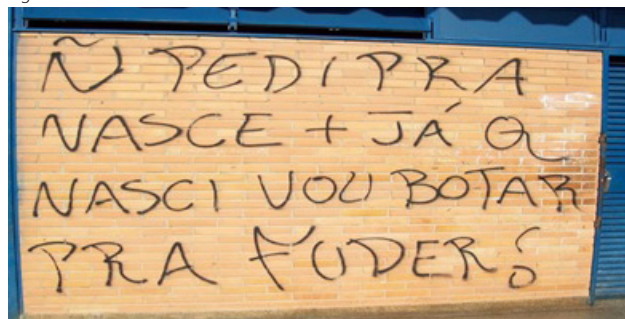 Ñ PEDI PRA
NASCE + JÁ Q
NASCI VOU BOTAR
PRA FUDER!